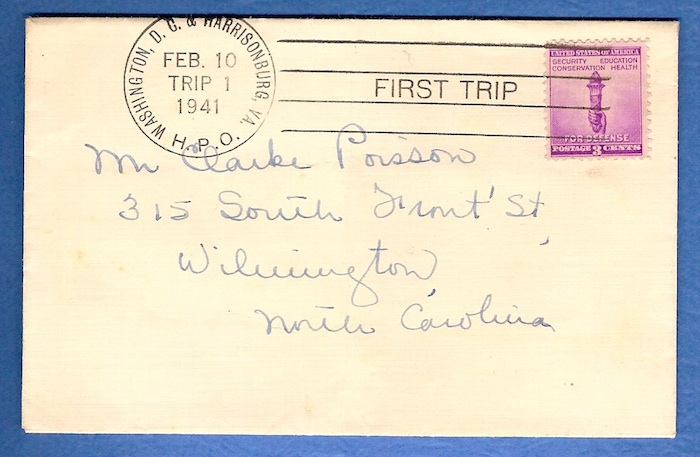 WASHINGTON, D. C. & HARRISONBURG, VA.
FEB. 10
TRIP 1
1941
H.P.O.
FIRST TRIP
UNITED STATES OF AMERICA
SECURITY EDUCATION
CONSERVATION HEALTH
FOR DEFENSE
POSTAGE 3 CENTS
Mr Clarke Poisson
315 South Front St
Wilmington
North Carolina